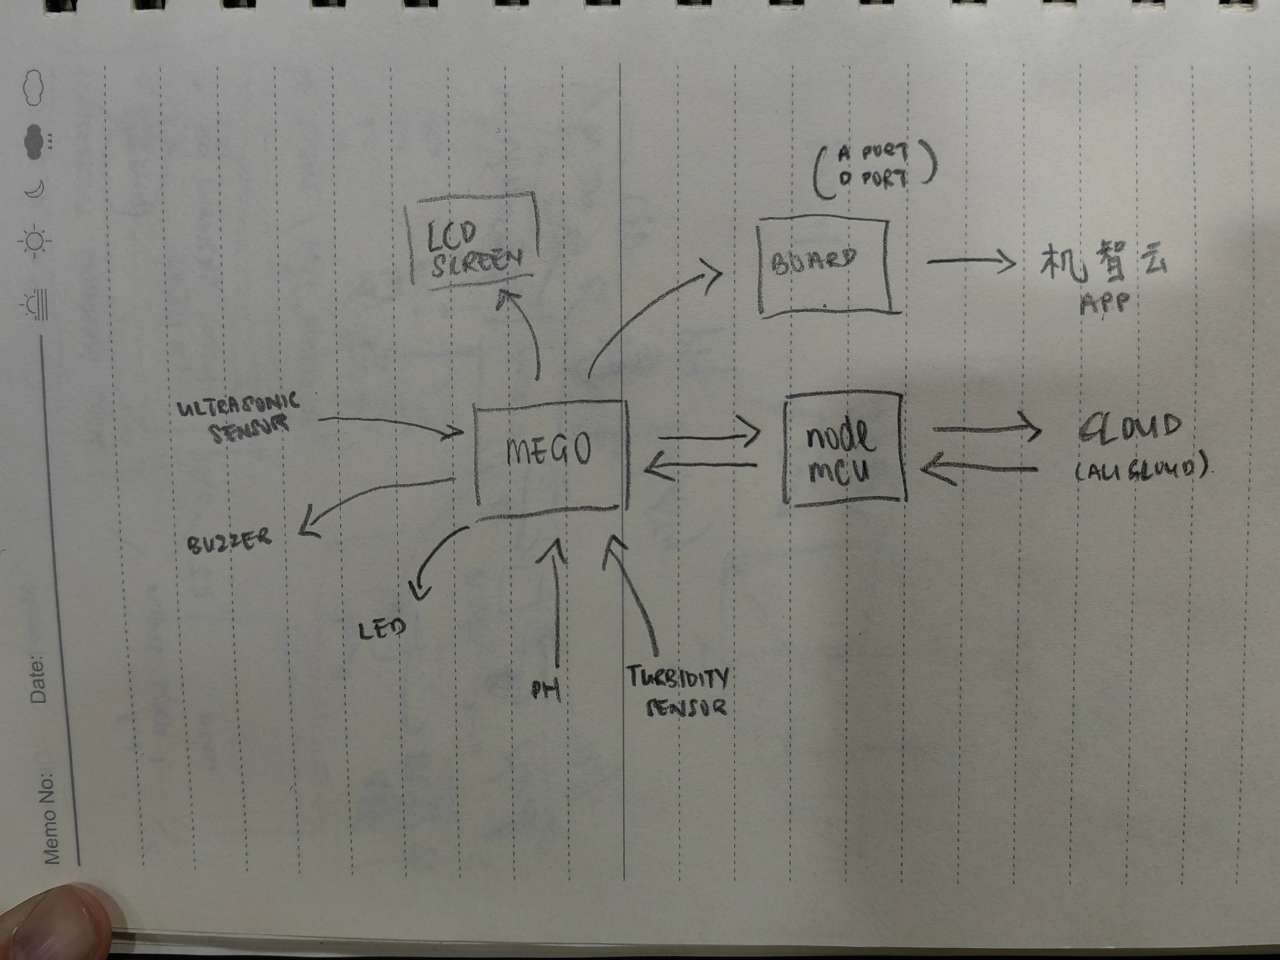 ( A PORT
D PORT )
LCD
SCREEN
BOARD
机智云
APP
ULTRASONIC
SENSOR
MEGO
node
mcu
CLOUD
(ALICLOUD).
BUZZER
LED
PH
TURBIDITY
SENSOR
Date:
Memo No: